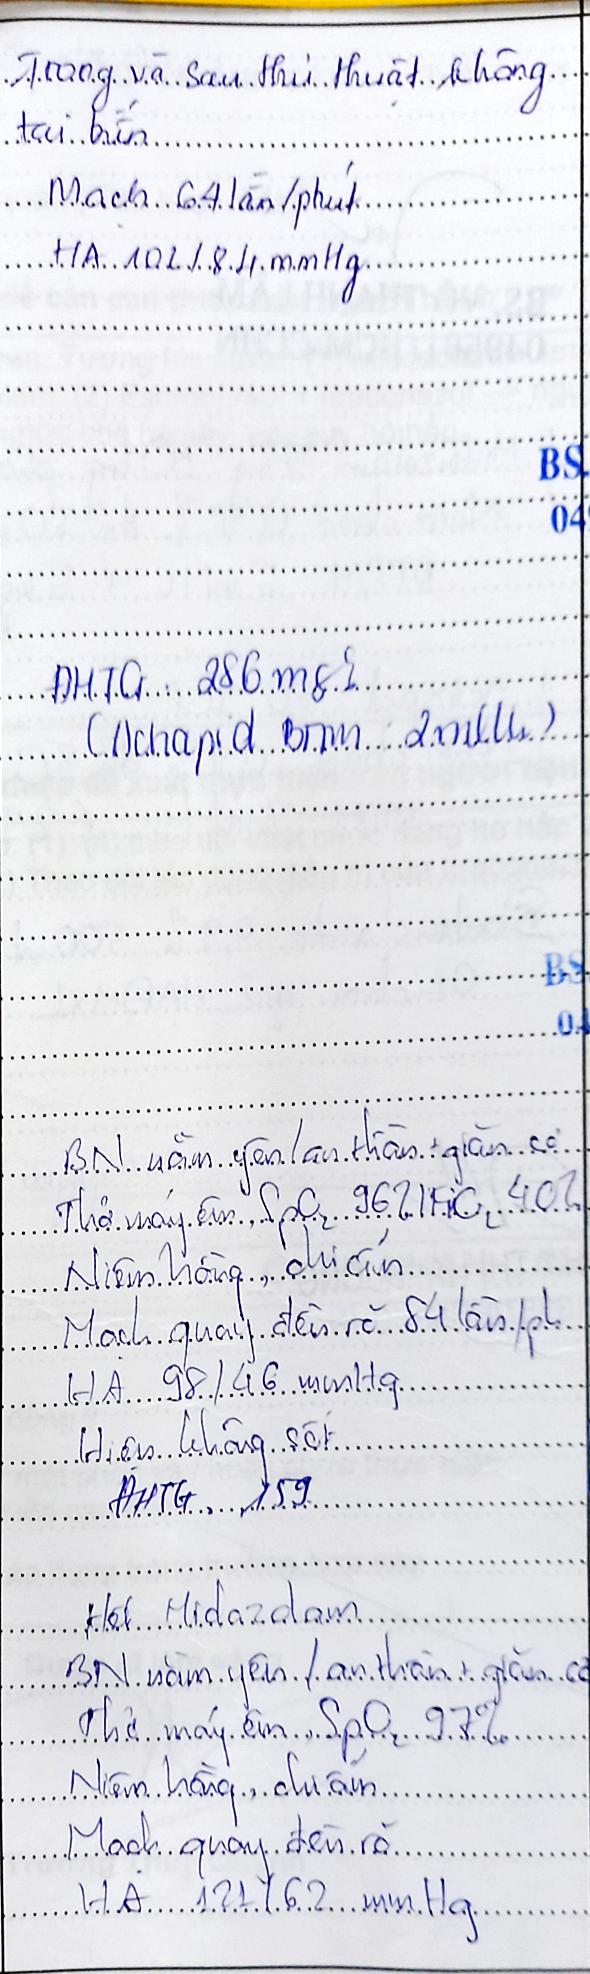 Trong và sau thủ thuật không
tai biến
Mạch 64 lần/phút
HA 102/84 mmHg
BS.
04
ĐHTG: 286 mg%
(Actrapid bơm 2ml/h)
BS
04
BN nằm yên/an thần + giãn cơ
Thở máy êm, SpO2 96%/FiO2 40%
Niêm hồng, chi ấm
Mạch quay đều rõ 84 lần/ph
HA 98/46 mmHg
Hiện không sốt
ĐHTG: 159
Hết Midazolam
BN nằm yên / an thần + giãn cơ
Thở máy êm, SpO2 97%
Niêm hồng, chi ấm
Mạch quay đều rõ
HA 121/62 mmHg